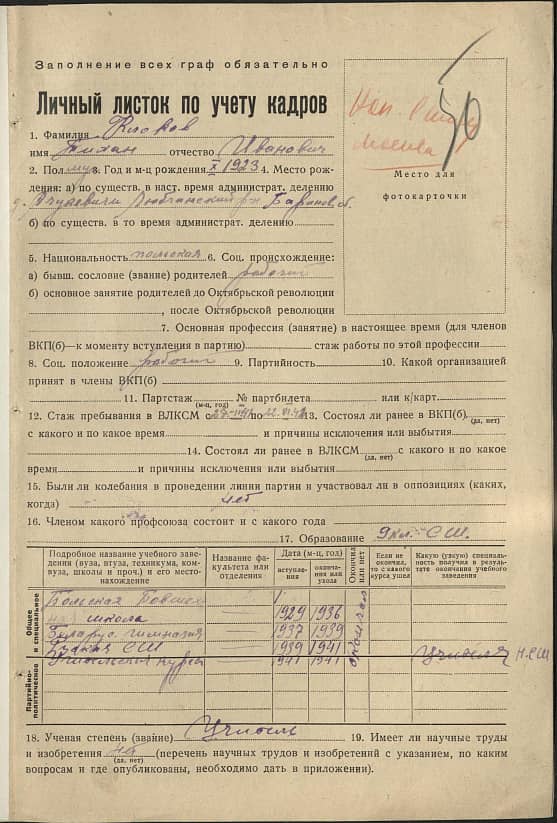 Заполнение всех граф обязательно
Личный листок по учету кадров
1. Фамилия Клоков
имя Тихан отчество Иванович
2. Пол муж 3. Год и м-ц рождения X 1923 4. Место рож-
дения: а) по существ. в наст. время администрат. делению
д. Ячулевичи Любчанский р-н Баранов. об.
б) по существ. в то время администрат. делению
5. Национальность польская 6. Соц. происхождение:
а) бывш. сословие (звание) родителей рабочий
б) основное занятие родителей до Октябрьской революции
, после Октябрьской революции
7. Основная профессия (занятие) в настоящее время (для членов
ВКП(б)—к моменту вступления в партию) стаж работы по этой профессии
8. Соц. положение рабочий 9. Партийность 10. Какой организацией
принят в члены ВКП(б)
11. Партстаж № партбилета или к/карт.
(м-ц, год)
12. Стаж пребывания в ВЛКСМ с по 22.VI.41 13. Состоял ли ранее в ВКП(б)
(да, нет)
с какого и по какое время и причины исключения или выбытия
14. Состоял ли ранее в ВЛКСМ с какого и по какое
(да, нет)
время и причины исключения или выбытия
15. Были ли колебания в проведении линии партии и участвовал ли в оппозициях (каких,
когда) нет
16. Членом какого профсоюза состоит и с какого года
17. Образование 9 кл. СШ.
Подробное название учебного заве-
дения (вуза, втуза, техникума, ком-
вуза, школы и проч.) и его место-
нахождение
Название фа-
культета или
отделения
Дата (м-ц, год)
вступле-
ния
оконча-
ния или
ухода
Окончил
или нет
Если не
окончил,
то с какого
курса ушел
Какую (узкую) специаль-
ность получил в резуль-
тате окончания учебного
заведения
Общее
и специальное
Польская Повше-
ная школа 1929 1936
Беларус. гимназия 1937 1939
СШ 1939 1941
окончил
Партийно-
политическое
Учительск. курсы 1941 1941 Учителя Н.СШ
18. Ученая степень (звание) Учитель 19. Имеет ли научные труды
и изобретения нет (перечень научных трудов и изобретений с указанием, по каким
(да, нет)
вопросам и где опубликованы, необходимо дать в приложении).
Москва
50
Место для
фотокарточки